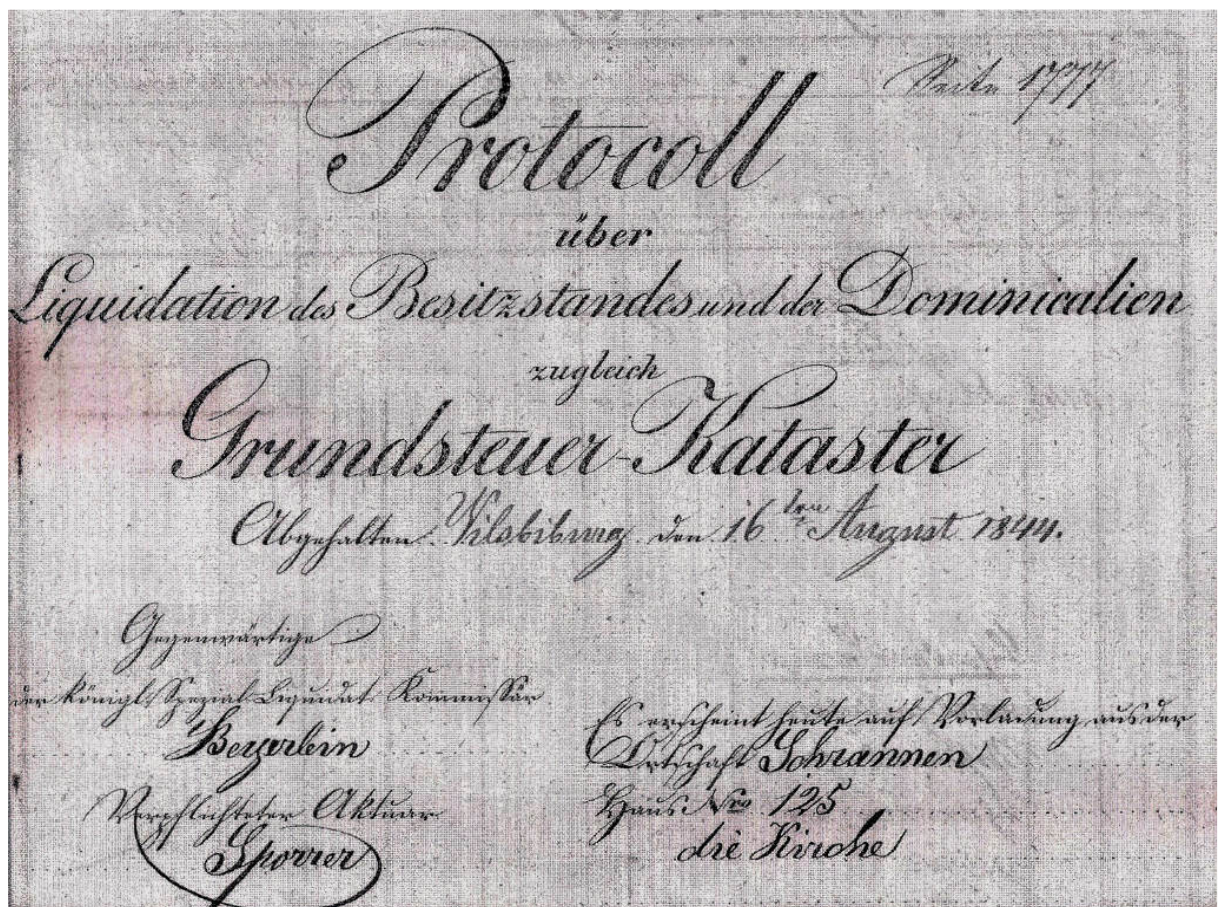 Seite 1777
Protocoll
über
Liquidation des Besitzstandes und der Dominicalien
zugleich
Grundsteuer-Kataster
Abgehalten Vilsbiburg den 16ten August 1844.
Gegenwärtige
der Königl. Spezial Liquidat. Kommissär
Beyerlein
Verpflichteter Aktuar
Sporrer
Es erscheint heute auf Vorladung aus der
Ortschaft Schrannen
Haus Nro 125
die Kirche